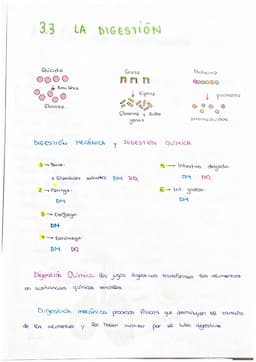 3.3 LA DIGESTIÓN
Glúcidos
Grasa
Proteínas
Amilasa
Lipasa
proteasa
Glucosa
Glicerina y ácidos
grasos
aminoácidos
DIGESTIÓN MECÁNICA y DIGESTIÓN QUÍMICA
1 → Boca
+ Glándulas salivares DM DQ
2 → Faringe
DM
3 → Esófago
DM
4 → Estómago
DM DQ
5 → Intestino delgado
DM DQ
6 → Int. grueso
DM
Digestión Química: los jugos digestivos transforman los alimentos
en sustancias químicas sencillas.
Digestión mecánica: procesos físicos que disminuyen el tamaño
de los alimentos y los hacen avanzar por el tubo digestivo.